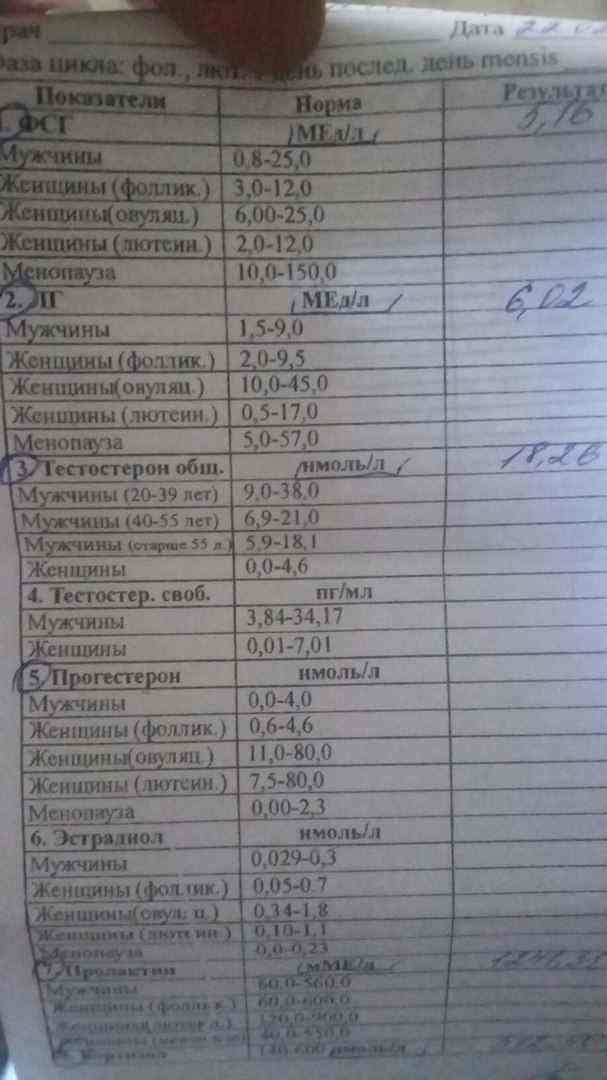 Дата 22.0
фаза цикла: фол., лют., день послед. день mensis
Показатели Норма Результат
1. ФСГ МЕд/л 5,16
Мужчины 0,8-25,0
Женщины (фоллик.) 3,0-12,0
Женщины(овуляц.) 6,00-25,0
Женщины (лютеин.) 2,0-12,0
Менопауза 10,0-150,0
2. ЛГ МЕд/л 6,02
Мужчины 1,5-9,0
Женщины (фоллик.) 2,0-9,5
Женщины(овуляц.) 10,0-45,0
Женщины (лютеин.) 0,5-17,0
Менопауза 5,0-57,0
3. Тестостерон общ. нмоль/л 18,26
Мужчины (20-39 лет) 9,0-38,0
Мужчины (40-55 лет) 6,9-21,0
Мужчины (старше 55 л.) 5,9-18,1
Женщины 0,0-4,6
4. Тестостер. своб. пг/мл
Мужчины 3,84-34,17
Женщины 0,01-7,01
5. Прогестерон нмоль/л
Мужчины 0,0-4,0
Женщины (фоллик.) 0,6-4,6
Женщины(овуляц.) 11,0-80,0
Женщины (лютеин.) 7,5-80,0
Менопауза 0,00-2,3
6. Эстрадиол нмоль/л
Мужчины 0,029-0,3
Женщины (фоллик.) 0,05-0.7
Женщины(овуляц.) 0,34-1,8
Женщины (лютеин.) 0,10-1,1
Менопауза 0,0-0,23
7. Пролактин мМЕ/л
Мужчины 60,0-560,0
Женщины (фоллик.) 60,0-600,0
Женщины(лютеин.) 120,0-900,0
40,0-550,0
8. Кортизол 140-600 нмоль/л